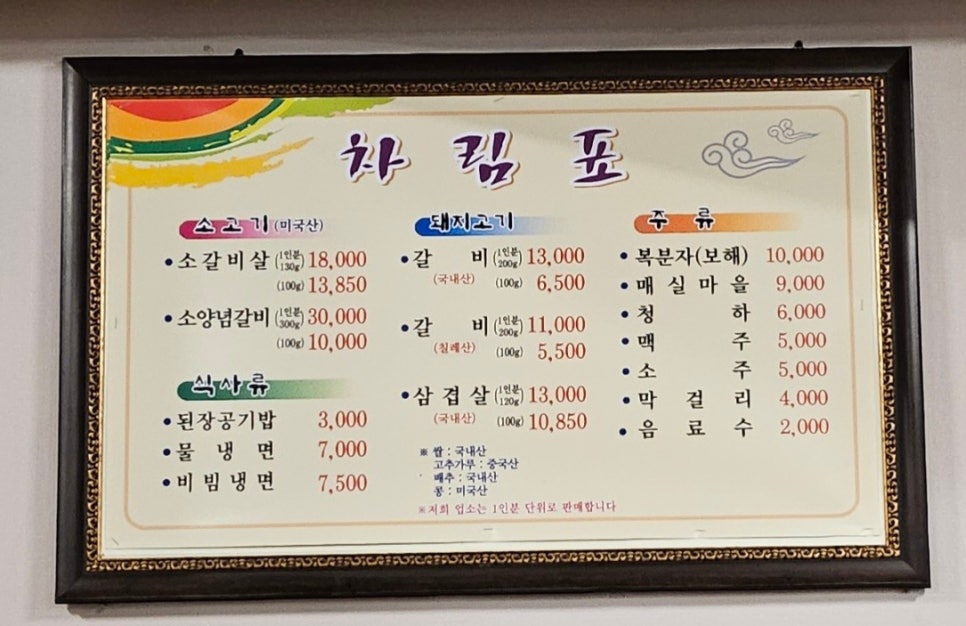 차림표
소고기(미국산)
•소갈비살(1인분 130g) 18,000
(100g) 13,850
•소양념갈비(1인분 300g) 30,000
(100g) 10,000
식사류
•된장공기밥 3,000
•물냉면 7,000
•비빔냉면 7,500
돼지고기
•갈비(1인분 200g) 13,000
(국내산) (100g) 6,500
•갈비(1인분 200g) 11,000
(칠레산) (100g) 5,500
•삼겹살(1인분 120g) 13,000
(국내산) (100g) 10,850
※ 쌀 : 국내산
고추가루 : 중국산
배추 : 국내산
콩 : 미국산
※저희 업소는 1인분 단위로 판매합니다
주류
•복분자(보해) 10,000
•매실마을 9,000
•청하 6,000
•맥주 5,000
•소주 5,000
•막걸리 4,000
•음료수 2,000